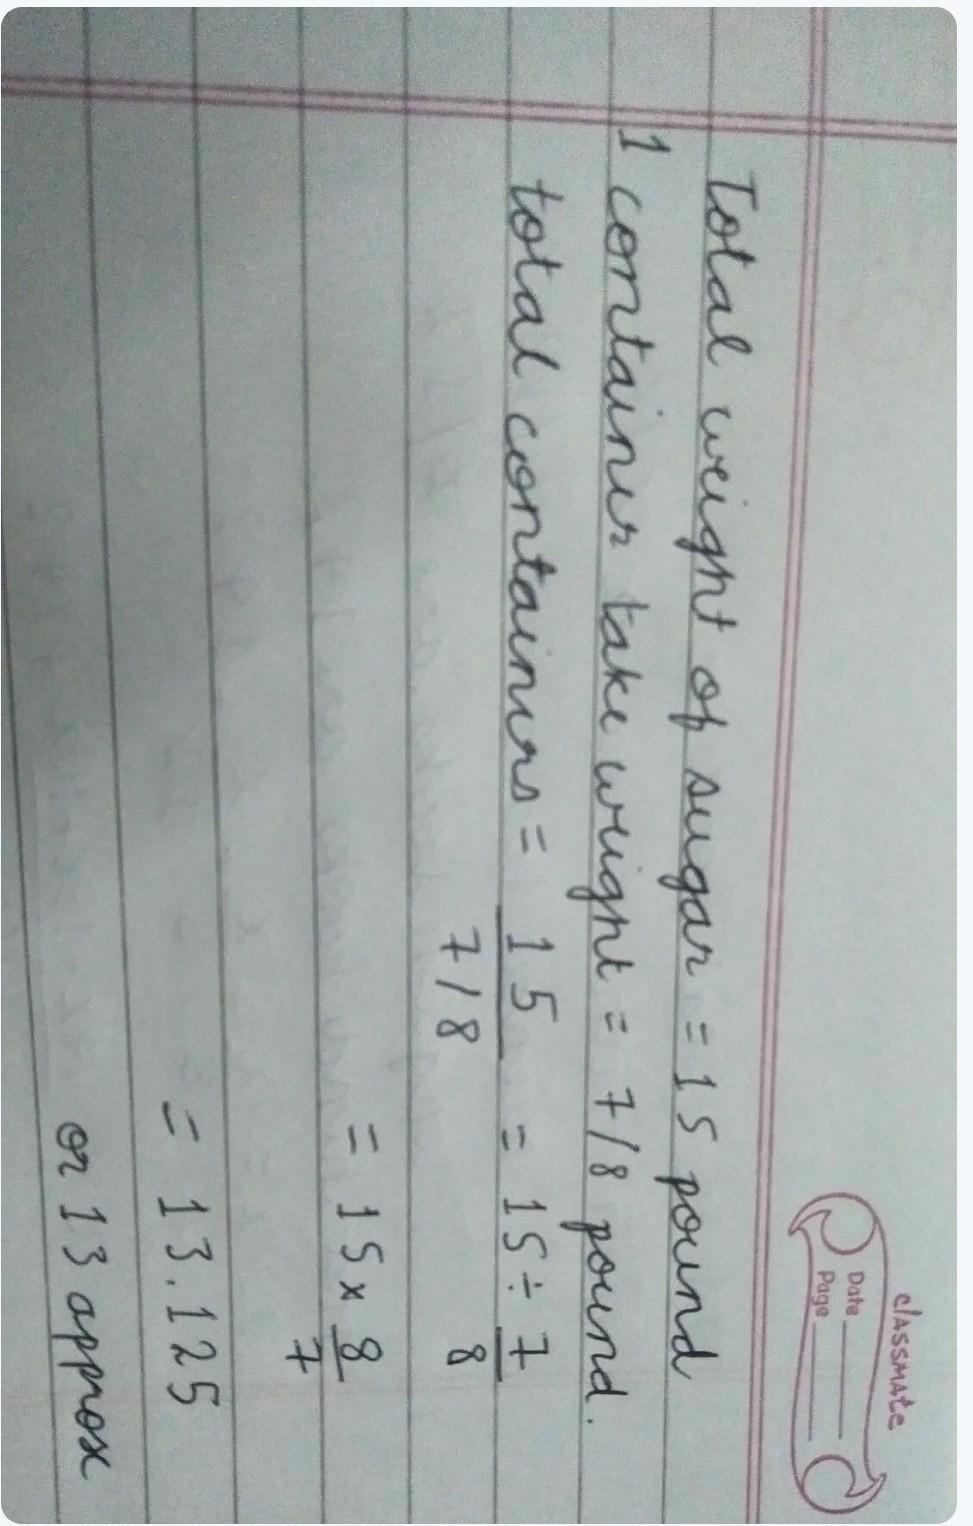 classmate
Date
Page
Total weight of sugar = 15 pound
1 container take weight = 7/8 pound.
total containers = 15 / 7/8 = 15 ÷ 7/8
= 15 × 8/7
= 13.125
or 13 approx